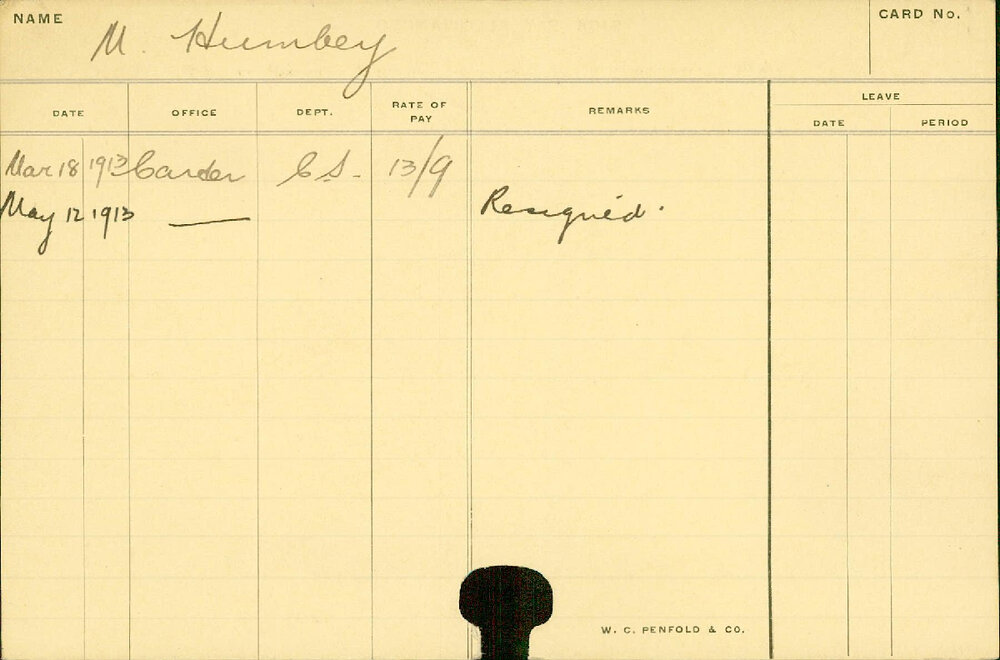 NAME M. Humbey CARD No.
DATE OFFICE DEPT. RATE OF PAY REMARKS LEAVE
DATE PERIOD
Mar 18 1913 Carder C.S. 13/9
May 12 1913 — Resigned.
W. C. PENFOLD & CO.